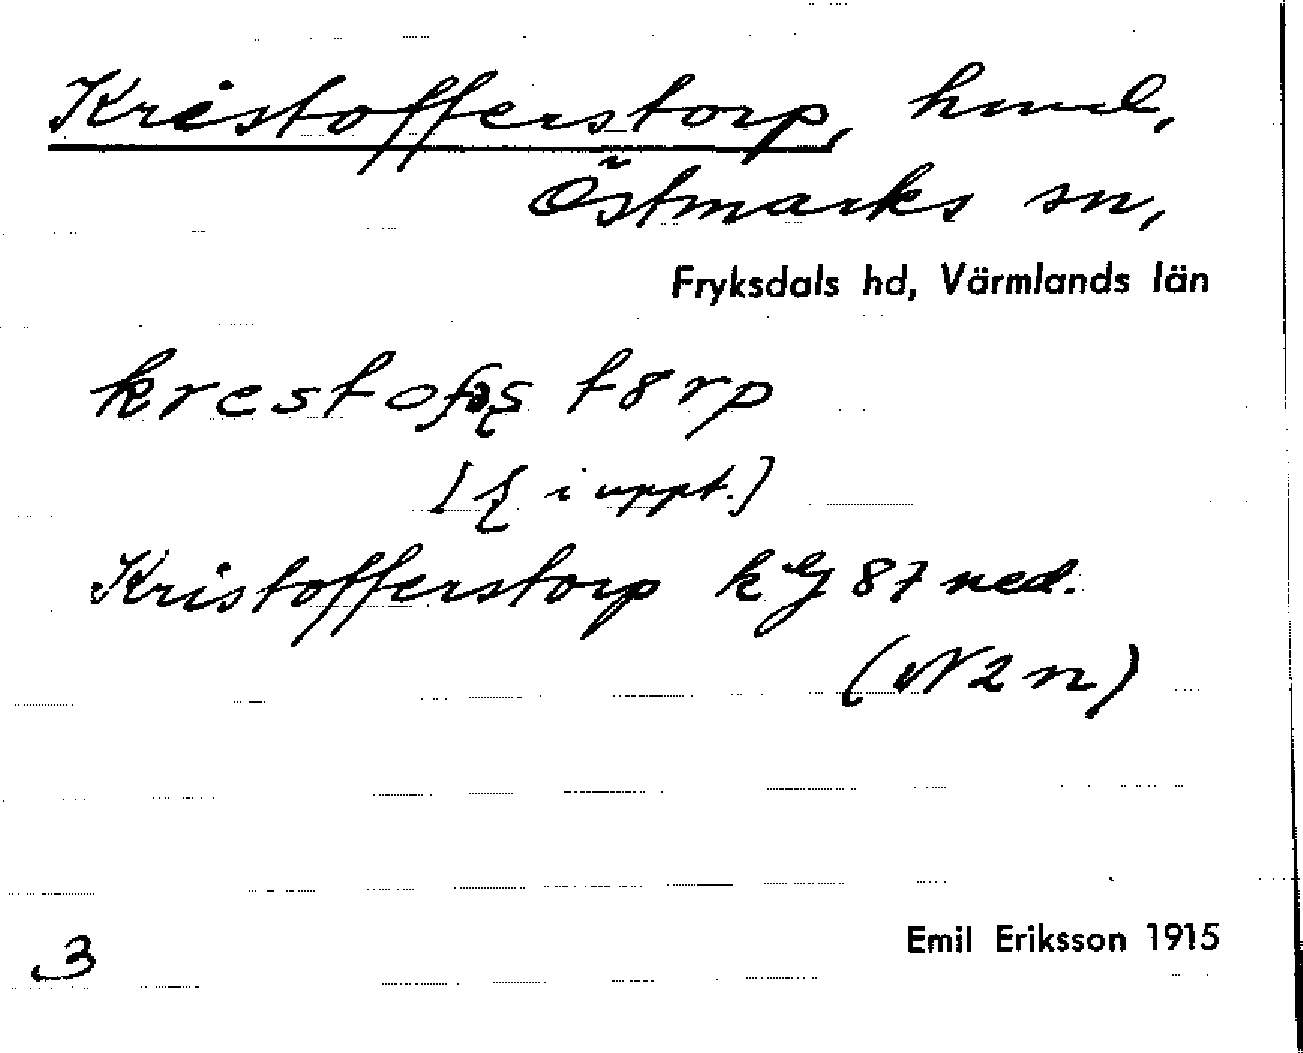 Kristofferstorp, hmd,
Östmarks sn,
Fryksdals hd, Värmlands län
t8rp
[ i uppt.]
Kristofferstorp kG 87 ned.
(N2n)
Emil Eriksson 1915
3